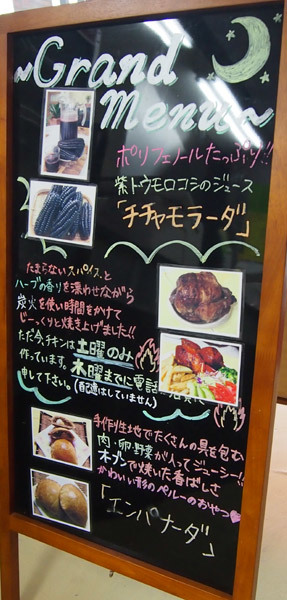 ~Grand
Menu~
ポリフェノールたっぷり!!
紫トウモロコシのジュース
「チチャモラーダ」
たまらないスパイスと
ハーブの香りを漂わせながら
炭火を使い時間をかけて
じーっくりと焼き上げました!!
ただ今チキンは土曜のみ
作っています。木曜までに電話
申して下さい。(配達はしていません)
手作り生地でたくさんの具を包む
肉・卵・野菜が入ってジューシー!!
オーブンで焼いた香ばしさ
かわいい形のペルーのおやつ
「エンパナーダ」